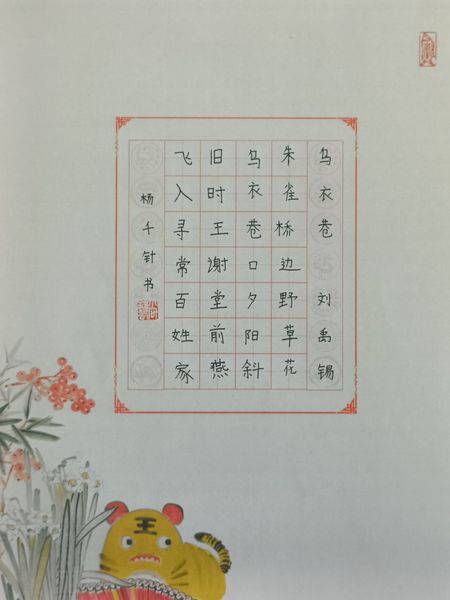 乌衣巷 刘禹锡
朱雀桥边野草花
乌衣巷口夕阳斜
旧时王谢堂前燕
飞入寻常百姓家
杨千针书
王